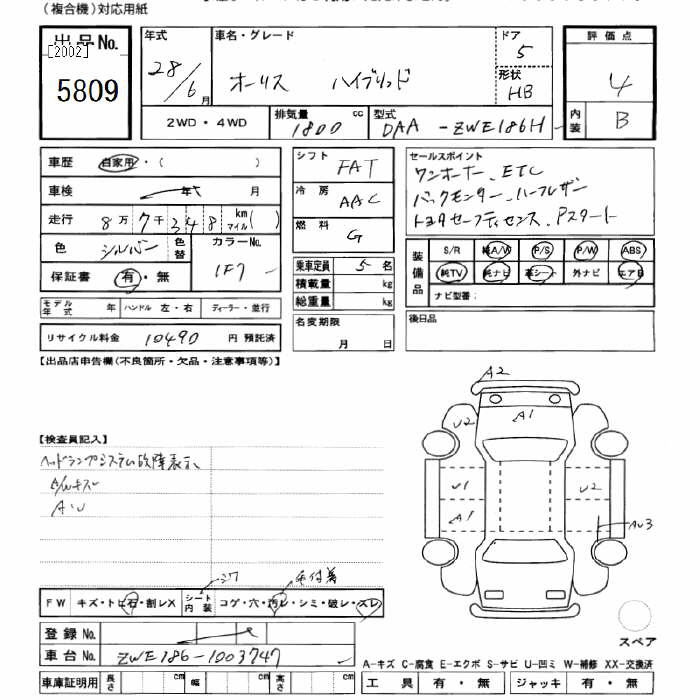 (複合機)対応用紙
出品No.
[2002]
5809
年式
28/6月
車名・グレード
オーリス ハイブリッド
ドア
5
形状
HB
評価点
4
内装
B
2WD・4WD
排気量
1800 cc
型式
DAA-ZWE186H
車歴 自家用・( )
車検 年 月
走行 8万7千348 km マイル( )
色 シルバー 色替 カラーNo. 1F7
保証書 有・無
モデル年式 年 ハンドル 左・右 ディーラー・並行
リサイクル料金 10490 円 預託済
シフト FAT
冷房 AAC
燃料 G
乗車定員 5名
積載量 kg
総重量 kg
名変期限
月 日
セールスポイント
ワンオーナー、ETC
バックモニター、ハーフレザー
トヨタセーフティセンス、Pスタート
装備品
S/R 純A/W P/S P/W ABS
純TV 純ナビ 革シート 外ナビ エアB
ナビ型番:
後日品
【出品店申告欄(不良箇所・欠品・注意事項等)】
【検査員記入】
ヘッドランプシステム故障表示
A/Wキズ
A・U
A2
A1
U2
U1
U2
A1
AU3
スペア
コゲ 毛付着
FW キズ・トビ石・割レX シート内装 コゲ・穴・汚レ・シミ・破レ・スレ
登録No.
車台No. ZWE186-1003747
車庫証明用 長さ cm 幅 cm 高さ cm
A-キズ C-腐食 E-エクボ S-サビ U-凹ミ W-補修 XX-交換済
工具 有・無 ジャッキ 有・無